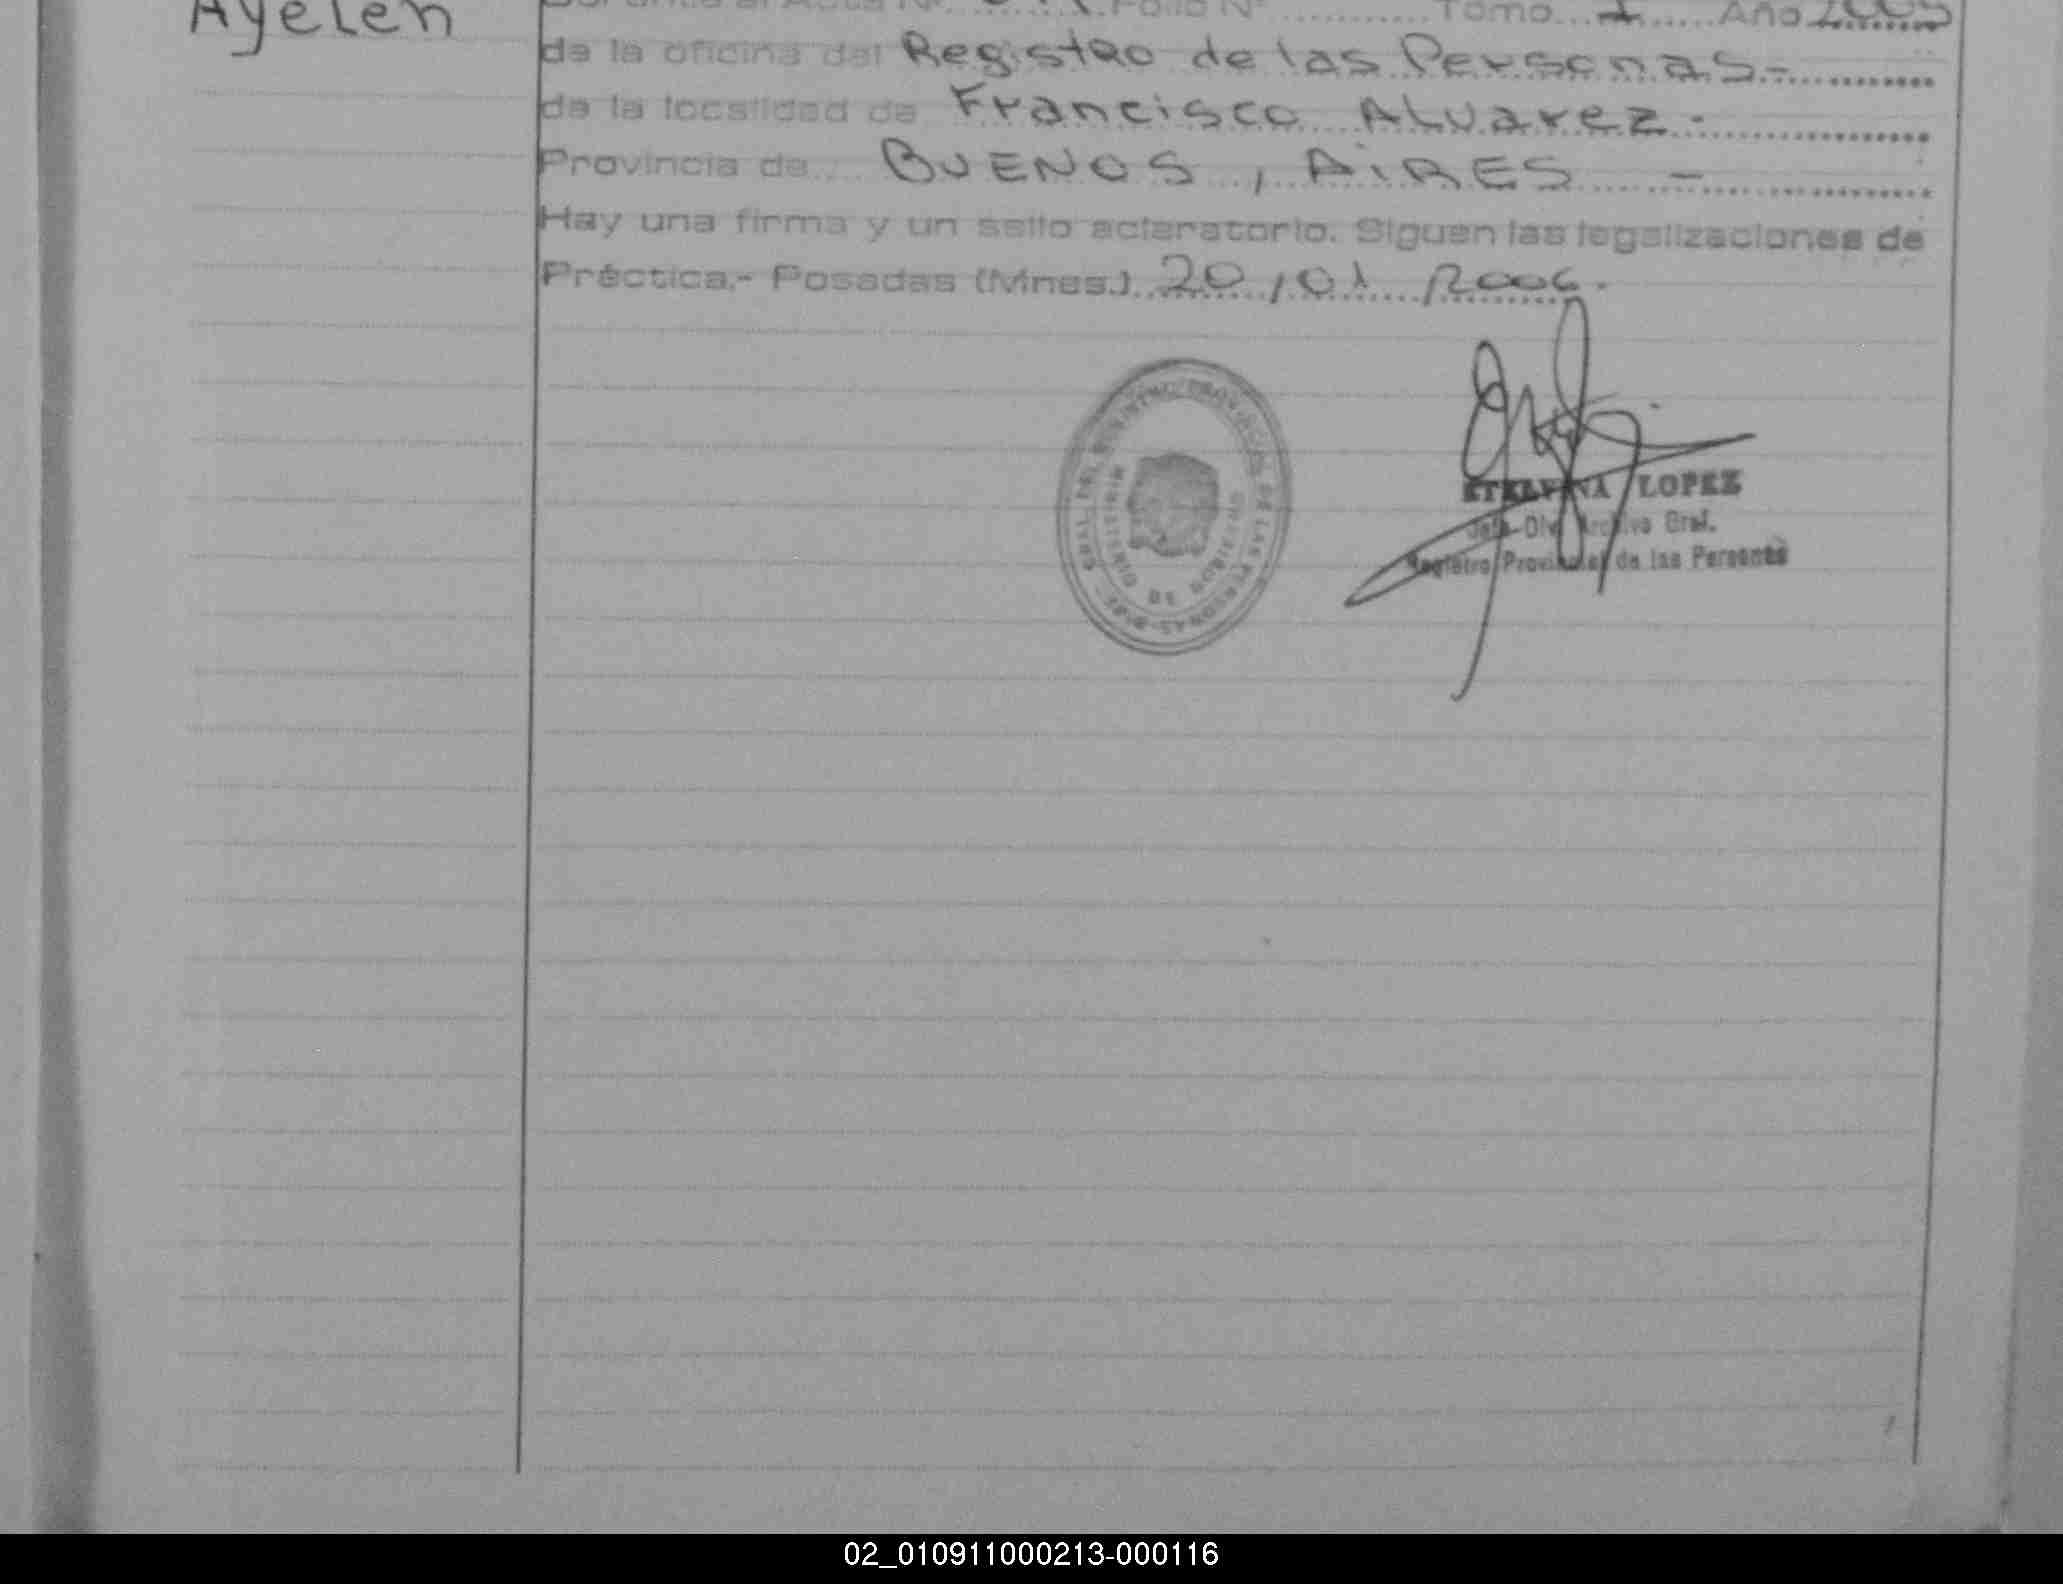 Ayelen
Acta Nº Folio Nº Tomo 1 Año 2005
de la oficina del Registro de las Personas.-
de la localidad de Francisco Alvarez.-
Provincia de BUENOS, AIRES -
Hay una firma y un sello aclaratorio. Siguen las legalizaciones de
Práctica.- Posadas (Mnes.) 20/01/2006.
ETELVINA LOPEZ
Jefa Div. Archivo Gral.
Registro Provincial de las Personas
02_010911000213-000116